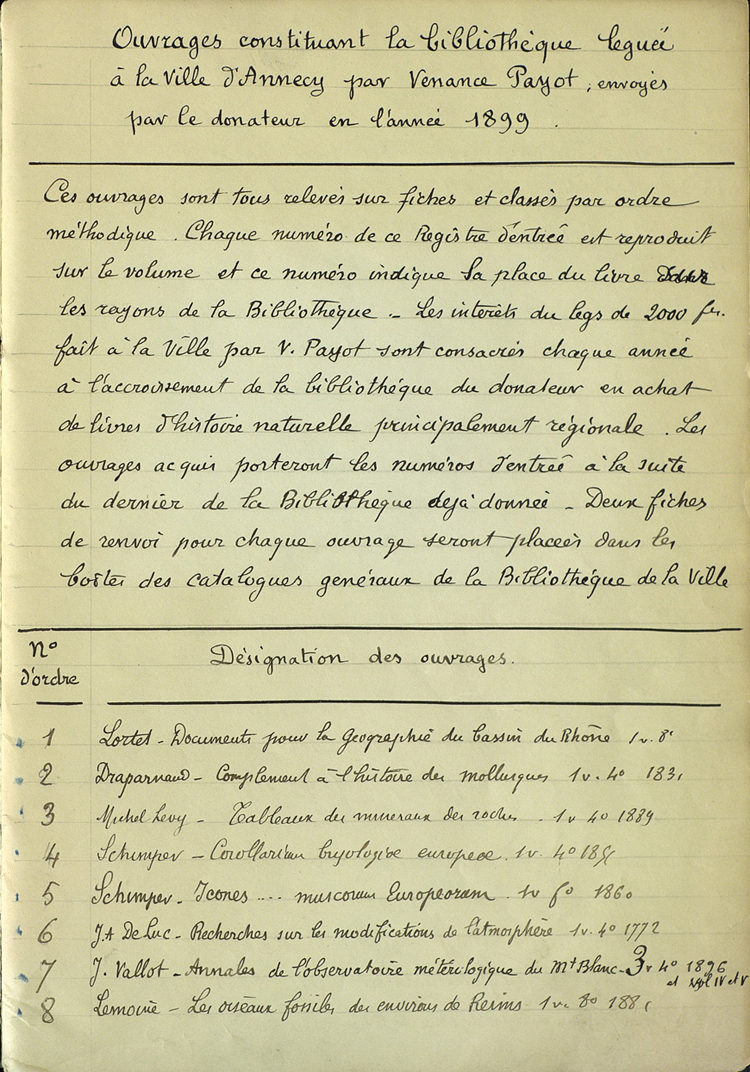 Ouvrages constituant la bibliothèque leguée
à la Ville d'Annecy par Venance Payot, envoyés
par le donateur en l'année 1899.
Ces ouvrages sont tous relevés sur fiches et classés par ordre
méthodique. Chaque numéro de ce Registre d'entrée est reproduit
sur le volume et ce numéro indique sa place du livre dans
les rayons de la Bibliothèque. - Les intérêts du legs de 2000 fr.
fait à la Ville par V. Payot sont consacrés chaque année
à l'accroissement de la bibliothèque du donateur en achat
de livres d'histoire naturelle principalement régionale. Les
ouvrages acquis porteront les numéros d'entrée à la suite
du dernier de la Bibliothèque dejà donnée - Deux fiches
de renvoi pour chaque ouvrage seront placées dans les
boîtes des catalogues genéraux de la Bibliothèque de la Ville
N° d'ordre
Désignation des ouvrages.
1 Lortet - Documents pour la géographie du bassin du Rhône 1 v. 8°
2 Draparnaud - Complément à l'histoire des mollusques 1 v. 4° 1831
3 Michel Levy - Tableaux des mineraux des roches. 1 v 4° 1889
4 Schimper - Corollarium bryologiae europeae. 1 v. 4°
5 Schimper - Icones .... muscorum Europeorum. 1 v f° 1860
6 J.A De Luc - Recherches sur les modifications de l'atmosphère 1 v. 4° 1772
7 J. Vallot - Annales de l'observatoire météorologique du Mt Blanc - 3 v 4° 1896
et IV et V
8 Lemoine - Les oiseaux fossiles des environs de Reims 1 v. 8° 1881